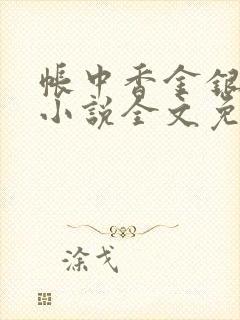 帐中香金银
小说全文免
涂戈